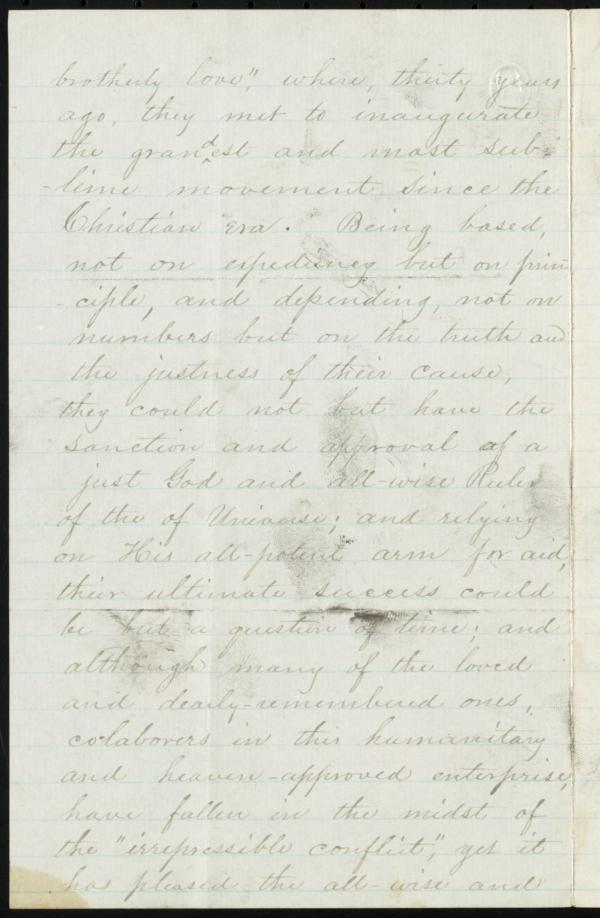 brotherly love", where, thirty years
ago, they met to inaugurate
the grandest and most sub-
-lime movement since the
Christian era. Being based,
not on expediency but on prin
-ciple, and depending, not on
numbers but on the truth and
the justness of their cause,
they could not but have the
sanction and approval of a
just God and all-wise Ruler
of the of Universe; and relying
on His all-potent arm for aid,
their ultimate success could
be but a question of time; and
although many of the loved
and dearly-remembered ones,
colaborers in this humanitary
and heaven-approved enterprise,
have fallen in the midst of
the "irrepressible conflict", yet it
has pleased the all-wise and